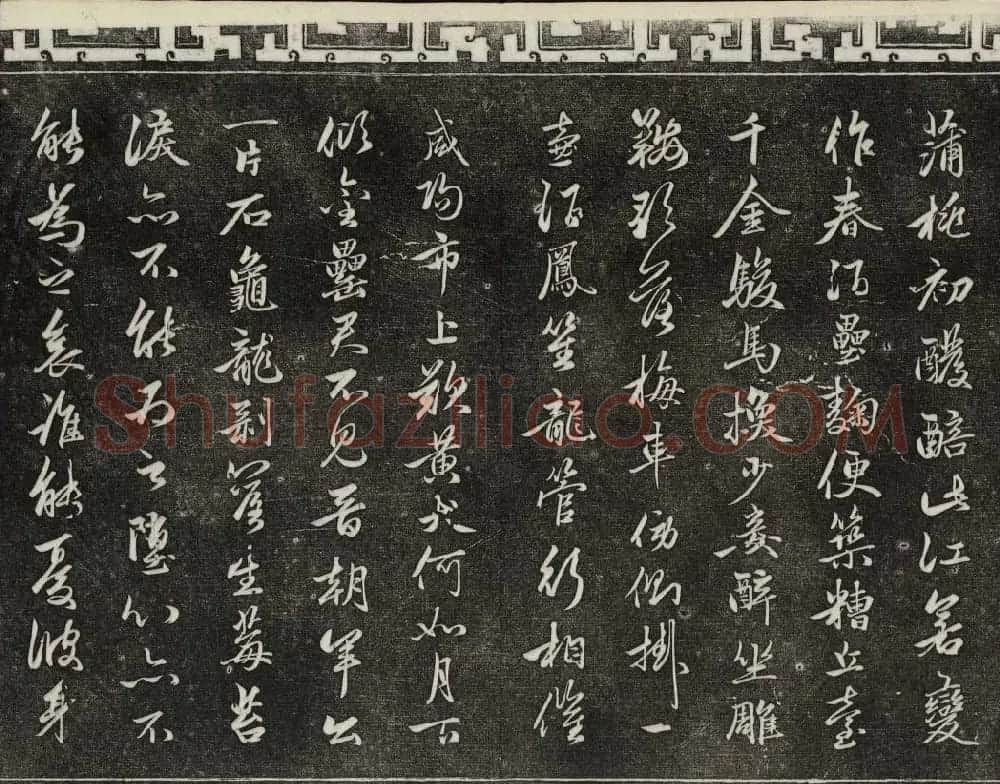 蒲桃初醱醅此江若變
作春酒壘麴便築糟丘臺
千金駿馬換少妾醉坐雕
鞍歌落梅車傍側掛一
壺酒鳳笙龍管行相催
咸陽市上歎黃犬何如月下
傾金罍君不見晉朝羊公
一片石龜龍剝落生莓苔
淚亦不能為之墮心亦不
能為之哀誰能憂彼身
Shufaziliao.COM